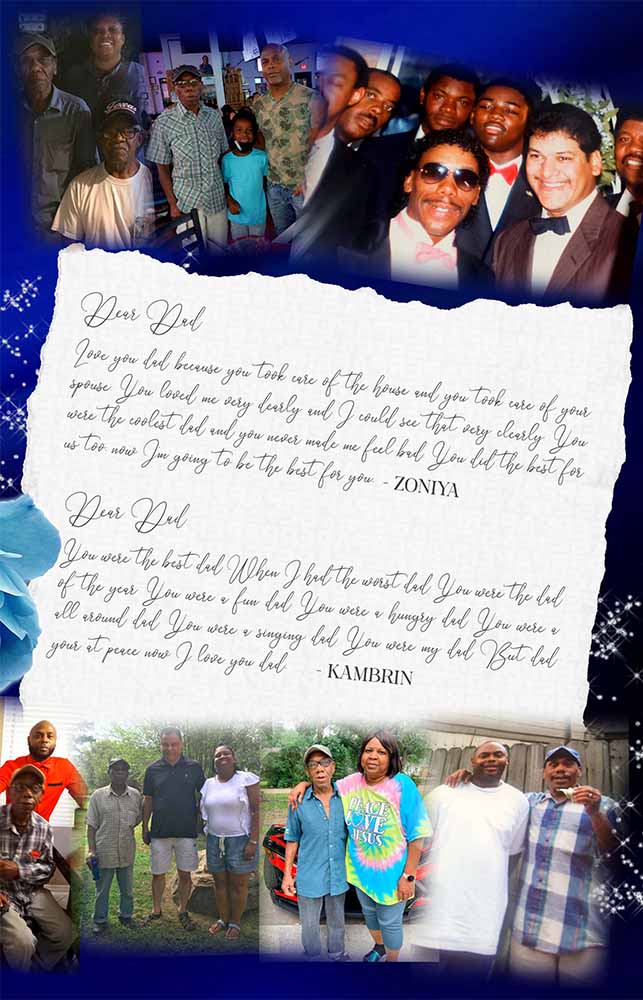 Dear Dad
Love you dad because you took care of the house and you took care of your
spouse You loved me very dearly and I could see that very clearly You
were the coolest dad and you never made me feel bad You did the best for
us too. now Im going to be the best for you. - ZONIYA
Dear Dad
You were the best dad When I had the worst dad You were the dad
of the year You were a fun dad You were a hungry dad You were a
all around dad You were a singing dad You were my dad But dad
your at peace now I love you dad - KAMBRIN
PEACE
LOVE
JESUS